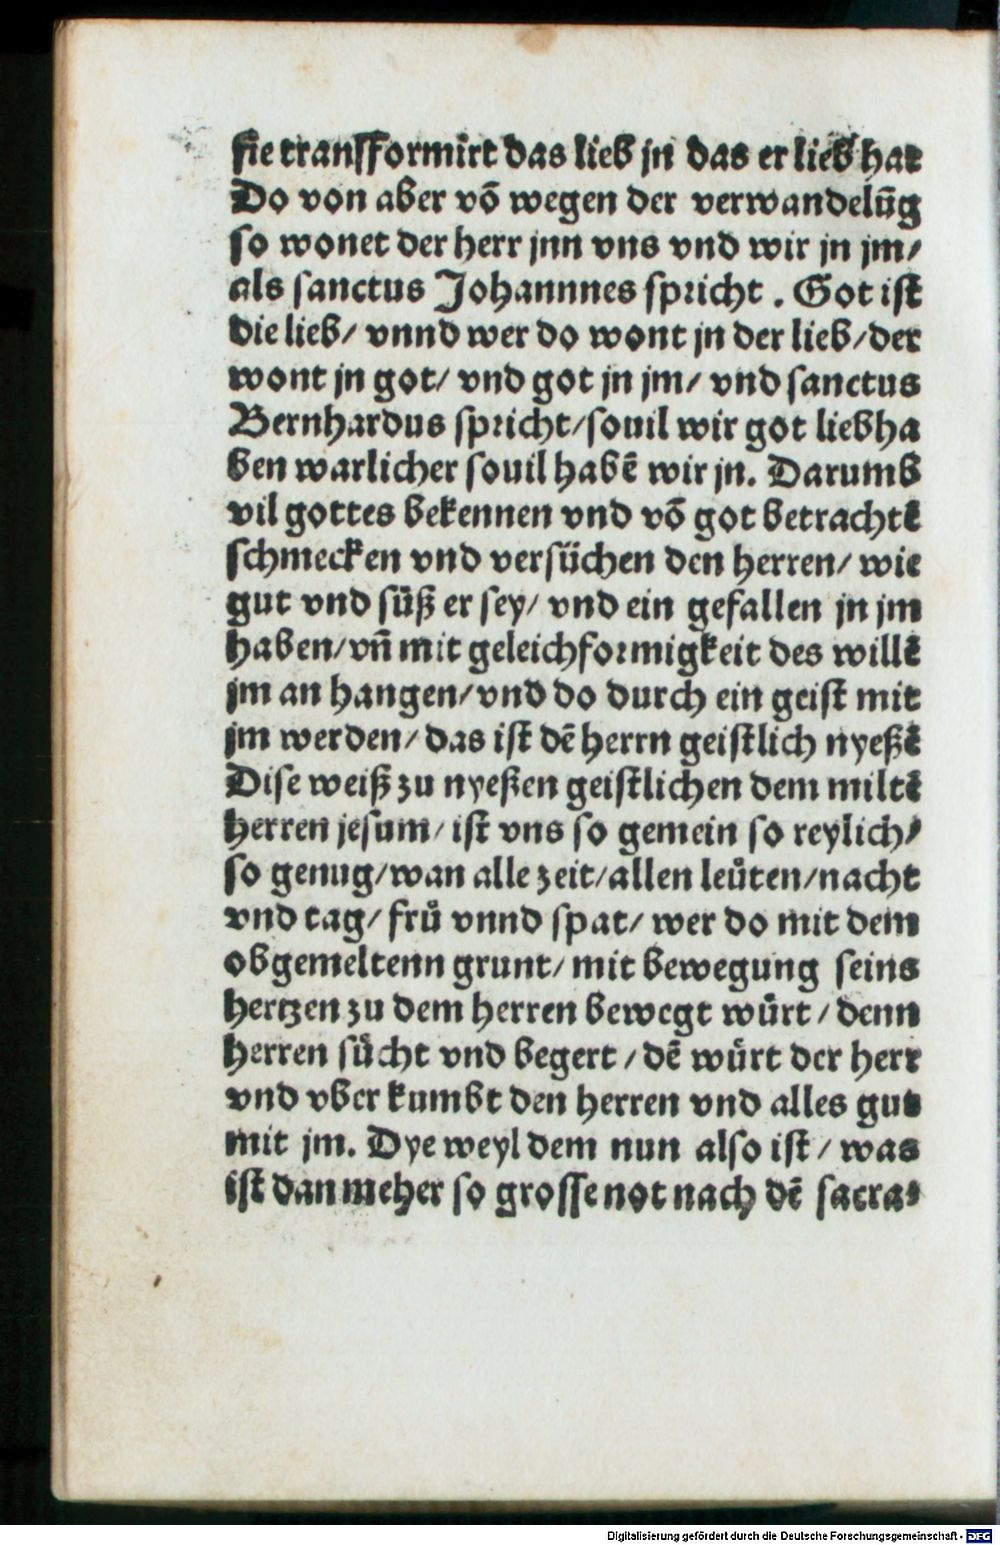 sie transsformirt das lieb jn das er lieb hat
Do von aber võ wegen der verwandelũg
so wonet der herr jnn vns vnd wir jn jm/
als sanctus Johannnes spricht . Got ist
die lieb/ vnnd wer do wont jn der lieb/der
wont jn got/ vnd got jn jm/ vnd sanctus
Bernhardus spricht/souil wir got liebha
ben warlicher souil habẽ wir jn. Darumb
vil gottes bekennen vnd võ got betrachtẽ
schmecken vnd versüchen den herren/ wie
gut vnd süß er sey/ vnd ein gefallen jn jm
haben/vñ mit geleichformigkeit des willẽ
jm an hangen/vnd do durch ein geist mit
jm werden/ das ist dẽ herrn geistlich nyeßẽ
Dise weiß zu nyeßen geistlichen dem miltẽ
herren jesum/ ist vns so gemein so reylich/
so genug/wan alle zeit/allen leuͤten/nacht
vnd tag/ fruͤ vnnd spat/ wer do mit dem
obgemeltenn grunt/ mit bewegung seins
hertzen zu dem herren bewegt wuͤrt / denn
herren suͤcht vnd begert / dẽ wuͤrt der herr
vnd vber kumbt den herren vnd alles gut
mit jm. Dye weyl dem nun also ist / was
ist dan meher so grosse not nach dẽ sacra⸗
Digitalisierung gefördert durch die Deutsche Forschungsgemeinschaft - DFG